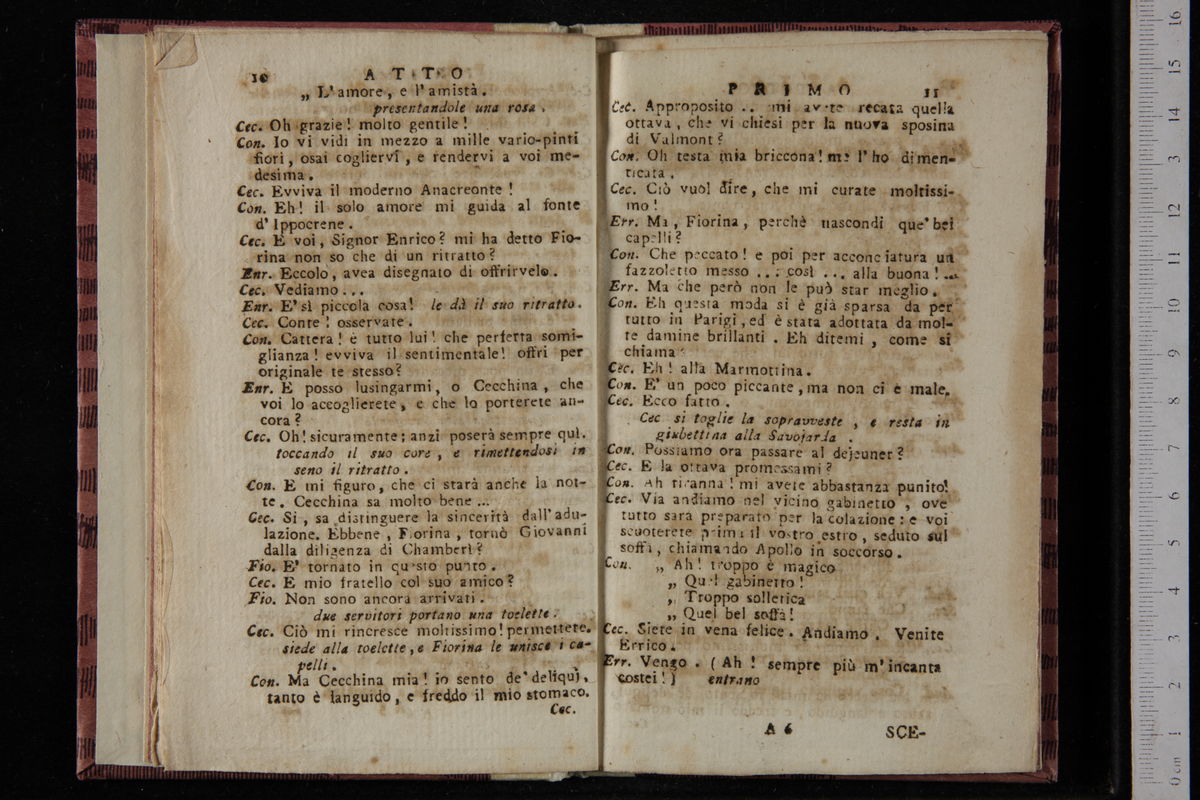 10 ATTO
„ L'amore, e l'amistà.
presentandole una rosa.
Cec. Oh grazie! molto gentile!
Con. Io vi vidi in mezzo a mille vario-pinti
fiori, osai cogliervi, e rendervi a voi me-
desima.
Cec. Evviva il moderno Anacreonte!
Con. Eh! il solo amore mi guida al fonte
d'Ippocrene.
Cec. E voi, Signor Enrico? mi ha detto Fio-
rina non so che di un ritratto?
Enr. Eccolo, avea disegnato di offrirvelo.
Cec. Vediamo...
Enr. E' sì piccola cosa! le dà il suo ritratto.
Cec. Conte! osservate.
Con. Cattera! è tutto lui! che perfetta somi-
glianza! evviva il sentimentale! offri per
originale te stesso?
Enr. E posso lusingarmi, o Cecchina, che
voi lo accoglierete, e che lo porterete an-
cora?
Cec. Oh! sicuramente; anzi poserà sempre quì.
toccando il suo core, e rimettendosi in
seno il ritratto.
Con. E mi figuro, che ci starà anche la not-
te. Cecchina sa molto bene ...
Cec. Si, sa distinguere la sincerità dall'adu-
lazione. Ebbene, Fiorina, tornò Giovanni
dalla diligenza di Chamberì?
Fio. E' tornato in questo punto.
Cec. E mio fratello col suo amico?
Fio. Non sono ancora arrivati.
due servitori portano una toelette.
Cec. Ciò mi rincresce moltissimo! permettete.
siede alla toelette, e Fiorina le unisce i ca-
pelli.
Con. Ma Cecchina mia! io sento de' deliquj,
tanto è languido, e freddo il mio stomaco.
Cec.
PRIMO 11
Cec. Approposito .. mi avete recata quella
ottava, che vi chiesi per la nuova sposina
di Valmont?
Con. Oh testa mia briccona! me l'ho dimen-
ticata.
Cec. Ciò vuol dire, che mi curate moltissi-
mo!
Err. Ma, Fiorina, perchè nascondi que' bei
capelli?
Con. Che peccato! e poi per acconciatura un
fazzoletto messo ... così ... alla buona! ...
Err. Ma che però non le può star meglio.
Con. Eh questa moda si è già sparsa da per
tutto in Parigi, ed è stata adottata da mol-
te damine brillanti. Eh ditemi, come si
chiama?
Cec. Eh! alla Marmottina.
Con. E' un poco piccante, ma non ci è male.
Cec. Ecco fatto.
Cec si toglie la sopravveste, e resta in
giubettina alla Savojarda.
Con. Possiamo ora passare al dejeuner?
Cec. E la ottava promessami?
Con. Ah tiranna! mi avete abbastanza punito!
Cec. Via andiamo nel vicino gabinetto, ove
tutto sarà preparato per la colazione: e voi
scuoterete prima il vostro estro, seduto sul
soffà, chiamando Apollo in soccorso.
Con. „ Ah! troppo è magico
„ Quel gabinetto!
„ Troppo solletica
„ Quel bel soffà!
Cec. Siete in vena felice. Andiamo. Venite
Errico.
Err. Vengo. (Ah! sempre più m'incanta
costei!) entrano
A 6 SCE-
0 cm 1 2 3 4 5 6 7 8 9 10 11 12 13 14 15 16